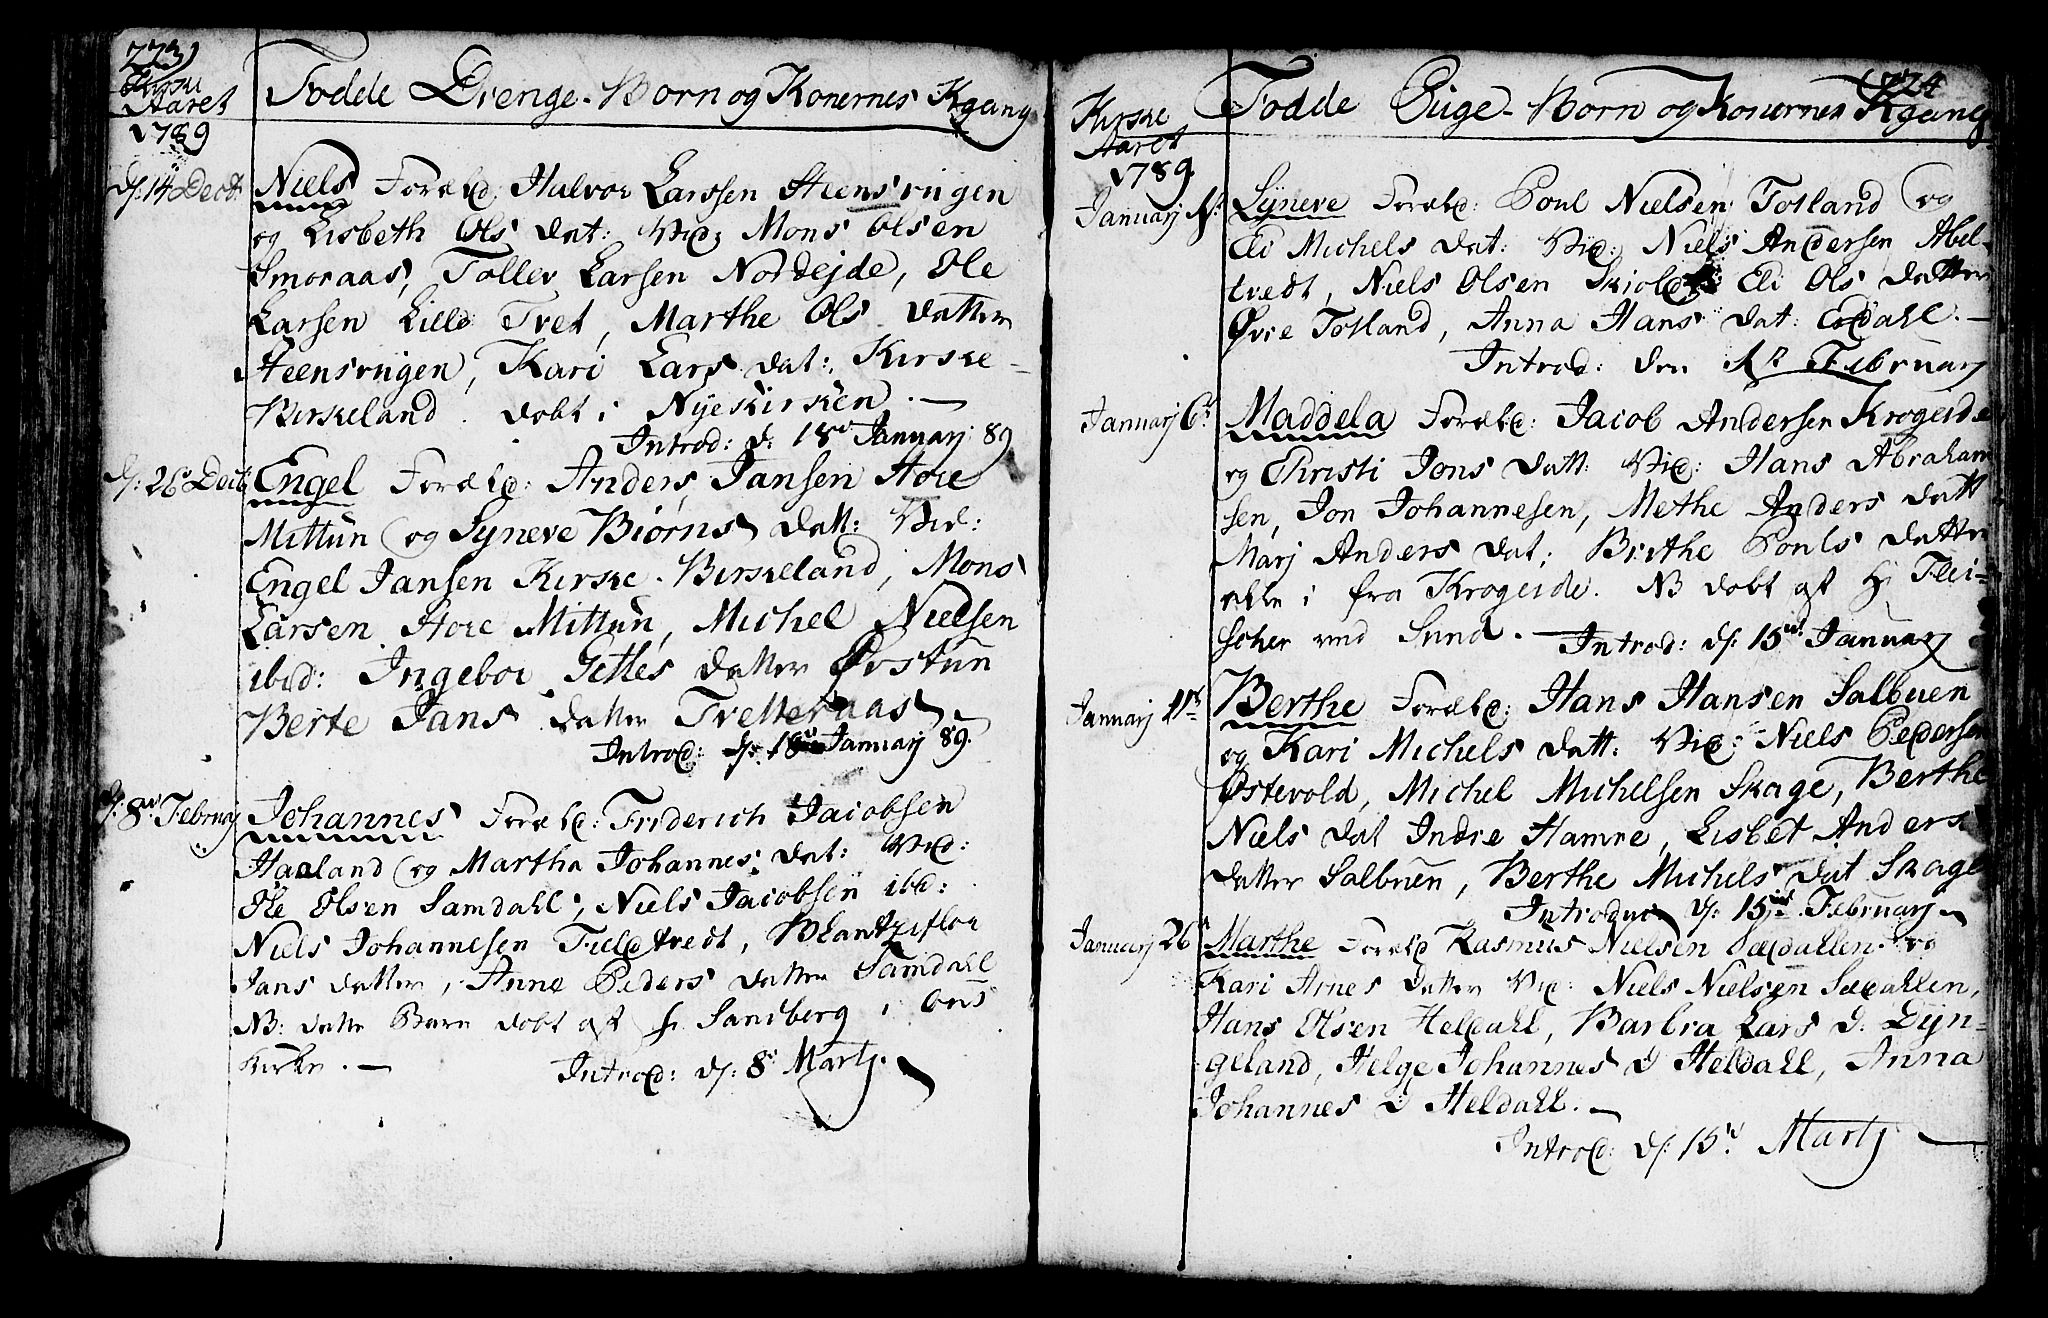 223)
Kirke
Aaret
1789
Fødde Drenge-Børn og Konernes Kgang
d: 14 Decb: Niels Foræld: Halvor Larssen Steensrügen
og Lisbeth Ols dat: Vid; Mons Olsen
Smoraas, Tollev Larsen Nordejde, Ole
Larsen Lille Tvet, Marthe Ols datter
Steensrügen, Kari Lars dat: Kirke-
Birkeland. døbt i Nÿekirken. —
Introd: d: 18 Januarj 89
d: 26 Decb Engel Foræld: Anders Jansen Store
Mittün og Syneve Biørns datt: Vid:
Engel Jansen Kirke-Birkeland, Mons
Larsen Store Mittün, Michel Nielsen
ibid: Ingebor Gitles datter Øvstün
Berte Jans datter Tvetteraas.
Introd: d: 18 Januarj 89.
d: 8 Februarj Johannes Foræld: Friderich Jacobsen
Haaland og Martha Johannes dat: Vid:
Ole Olsen Samdahl, Niels Jacobsen ibid:
Niels Johannesen Fieldtvedt, Blantzeflor
Jans datter, Anne Peders datter Samdahl
NB: dette Barn døbt af hr. Sandberg i Ous
Kirke. —
Introd: d: 8 Martj.
224
Kirke
Aaret
1789
Fødde Pige-Børn og Konernes Kgang
Januarj 1. Syneve Foræld: Poul Nielsen Totland og
Eli Michels dat: Vid: Niels Andersen Abel-
tvedt, Niels Olsen Skiold Eli Ols datter
Øvre Totland, Anna Hans dat: Eldahl. —
Introd: den 1 Februarj
Januarj 6 Maddela Foræld: Jacob Andersen Krogeide
og Christi Jons datt: Vid: Hans Abraham
sen, Jon Johannesen, Methe Anders datt
Marj Anders dat; Birthe Pouls datter
alle i fra Krogeide. NB døbt af Hr Flei-
scher ved Sund. — Introd: d: 15 Januarj
Januarj 21 Berthe Foræld: Hans Hansen Salbuen
og Kari Michels datt: Vid: Niels Pedersen
Østevold, Michel Michelsen Skage, Berthe
Niels dat Indre Hamre, Lisbet Anders
datter Salbuen, Berthe Michels dat Skage
Introduc d: 15 Februarj
Januarj 26 Marthe Foræld Rasmus Nielsen Sædahlen. og
Kari Arnes datter Vid: Niels Nielsen Sædahlen,
Hans Olsen Heldahl, Barbra Lars D: Dÿn-
geland, Helge Johannes D Heldahl, Anna
Johannes D Heldahl. —
Introd: d: 15 Martj —